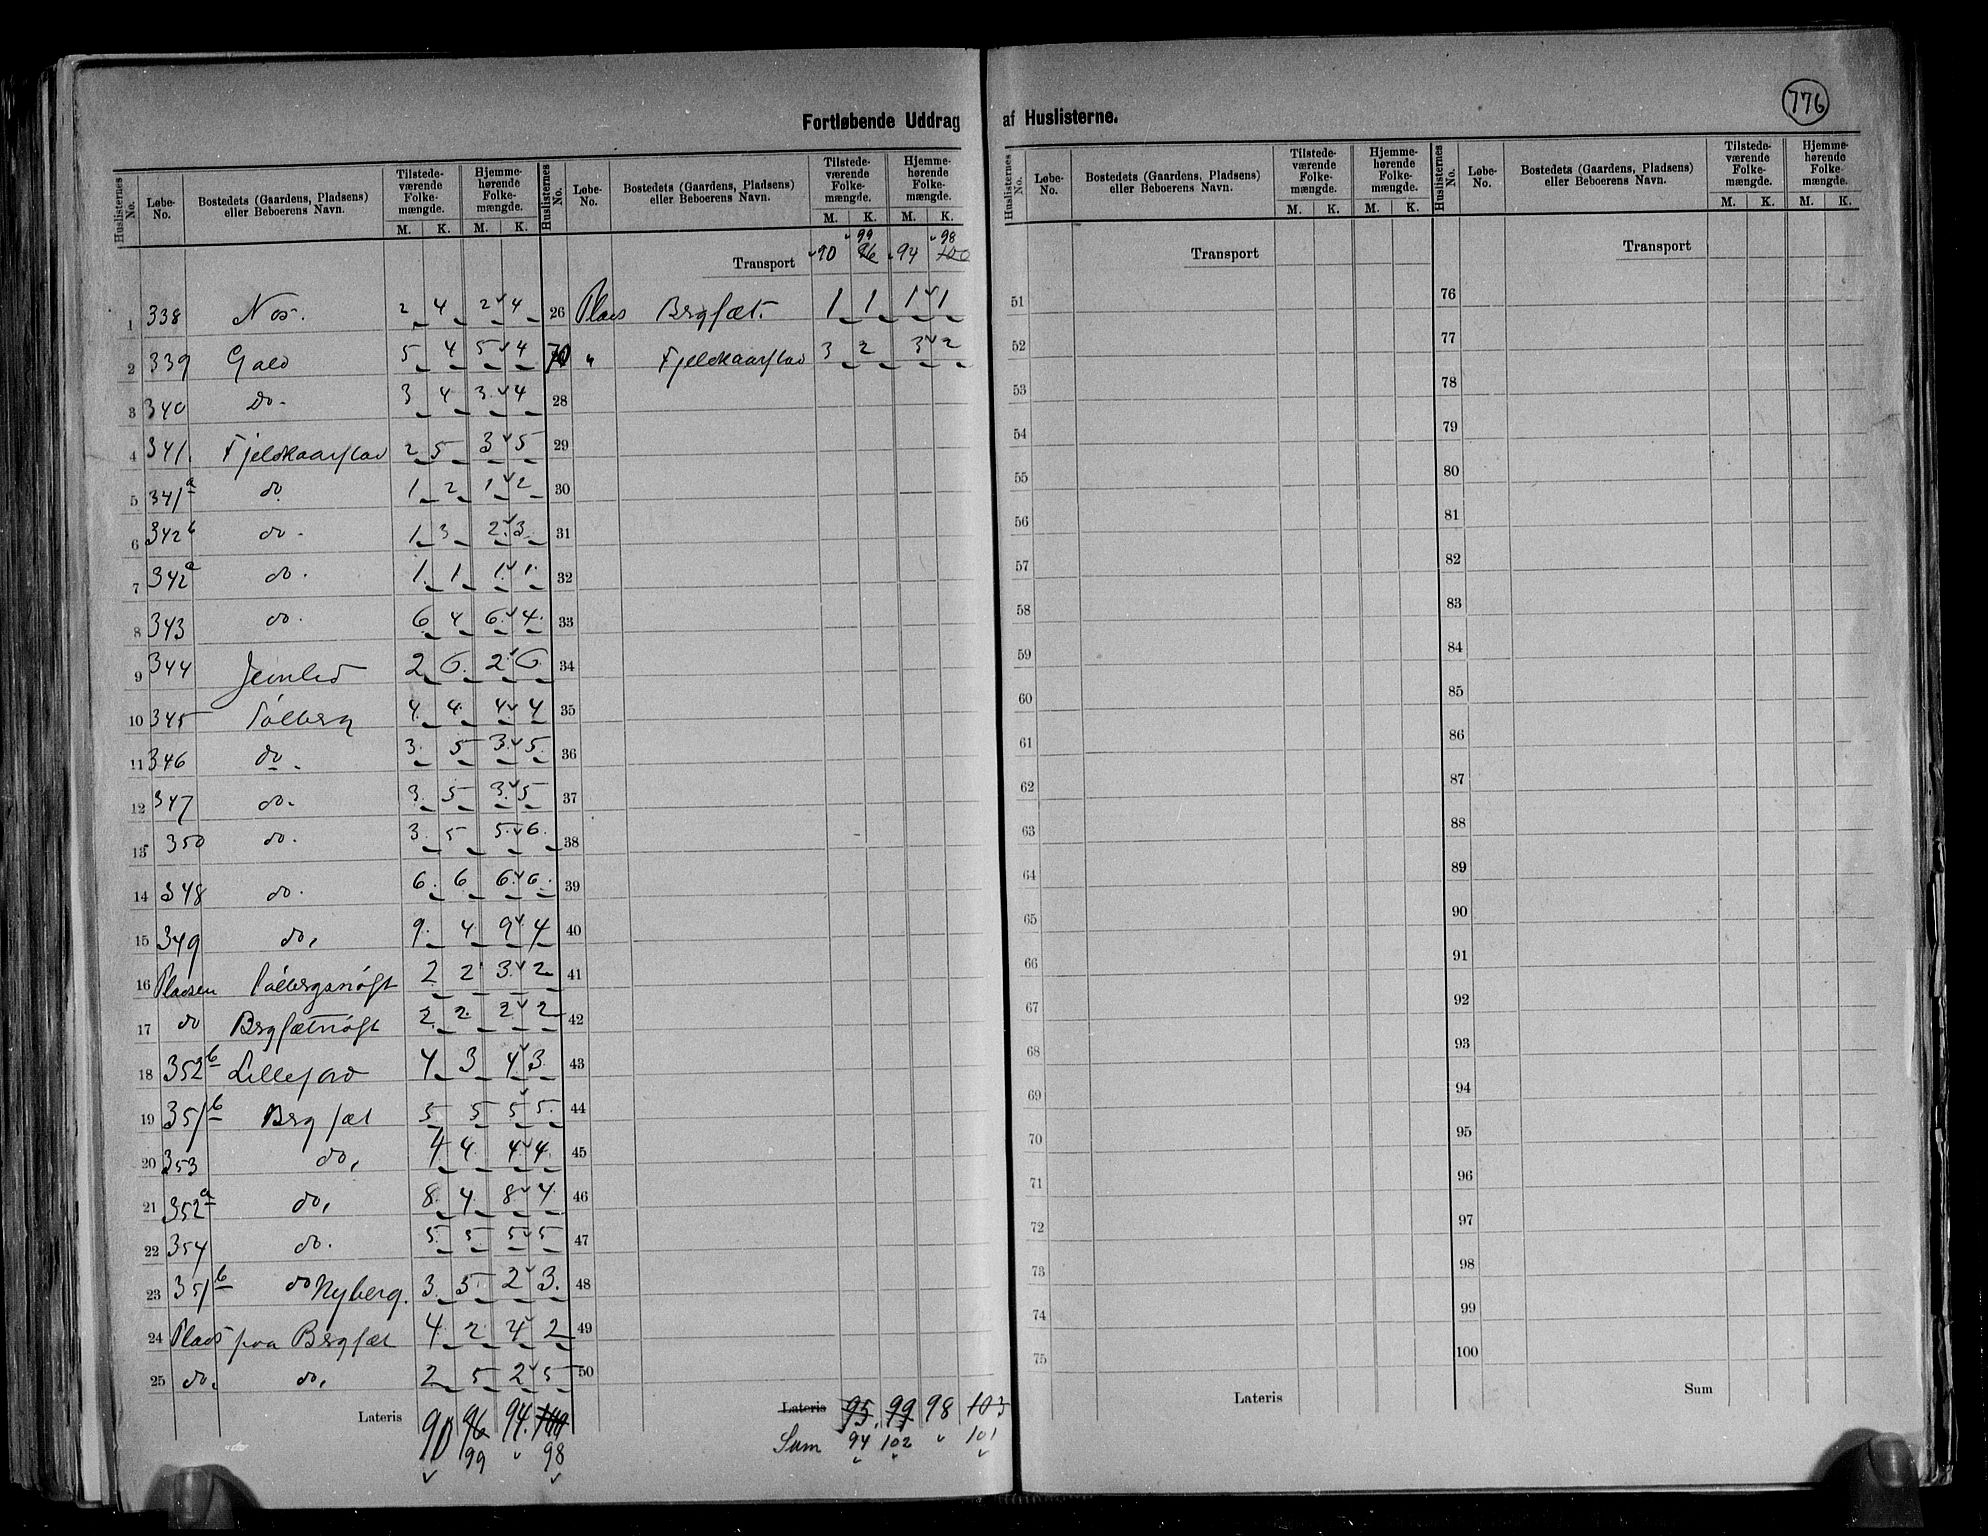 776
Fortløbende Uddrag af Huslisterne.
Huslisternes No. Løbe-No. Bostedets (Gaardens, Pladsens) eller Beboerens Navn. Tilstedeværende Folkemængde. M. K. Hjemmehørende Folkemængde. M. K.
1 338 Nos. 2 4 2 4
2 339 Gald 5 4 5 4
3 340 do. 3 4 3 4
4 341. Fjeldkaarstad 2 5 3 5
5 341a do 1 2 1 2
6 342b do. 1 3 2 3
7 342a do. 1 1 1 1
8 343 do. 6 4 6 4
9 344 2 6 2 6
10 345 Tølberg 4 4 4 4
11 346 do. 3 5 3 5
12 347 do. 3 5 3 5
13 350 do. 3 5 5 6
14 348 do. 6 6 6 6
15 349 do, 9 4 9 4
16 Pladsen 2 2 3 2
17 do 2 2 2 2
18 352b Lillejord 4 3 4 3
19 351b Bergsæt 5 5 5 5
20 353 do, 4 4 4 4
21 352a do, 8 4 8 4
22 354 do. 5 5 5 5
23 351b do Nyberg. 3 5 2 3
24 Plads paa Bergsæt 4 2 4 2
25 do. do, 2 5 2 5
Lateris 90 96 94 100
99 98
Huslisternes No. Løbe-No. Bostedets (Gaardens, Pladsens) eller Beboerens Navn. Tilstedeværende Folkemængde. M. K. Hjemmehørende Folkemængde. M. K.
99 98
Transport 90 96 94 100
26 Plads Bergsæt. 1 1 1 1
" Fjeldkaarstad 3 2 3 2
28
29
30
31
32
33
34
35
36
37
38
39
40
41
42
43
44
45
46
47
48
49
50
Lateris 95 99 98 103
Sum 94 102 101
Huslisternes No. Løbe-No. Bostedets (Gaardens, Pladsens) eller Beboerens Navn. Tilstedeværende Folkemængde. M. K. Hjemmehørende Folkemængde. M. K.
Transport
51
52
53
54
55
56
57
58
59
60
61
62
63
64
65
66
67
68
69
70
71
72
73
74
75
Lateris
Huslisternes No. Løbe-No. Bostedets (Gaardens, Pladsens) eller Beboerens Navn. Tilstedeværende Folkemængde. M. K. Hjemmehørende Folkemængde. M. K.
Transport
76
77
78
79
80
81
82
83
84
85
86
87
88
89
90
91
92
93
94
95
96
97
98
99
100
Sum